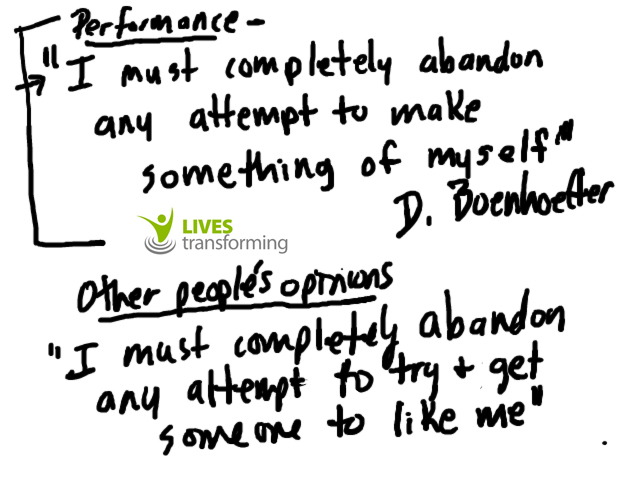 Performance -
"I must completely abandon
any attempt to make
something of myself"
D. Boenhoeffer
LIVES
transforming
Other people's opinions
"I must completely abandon
any attempt to try + get
someone to like me"